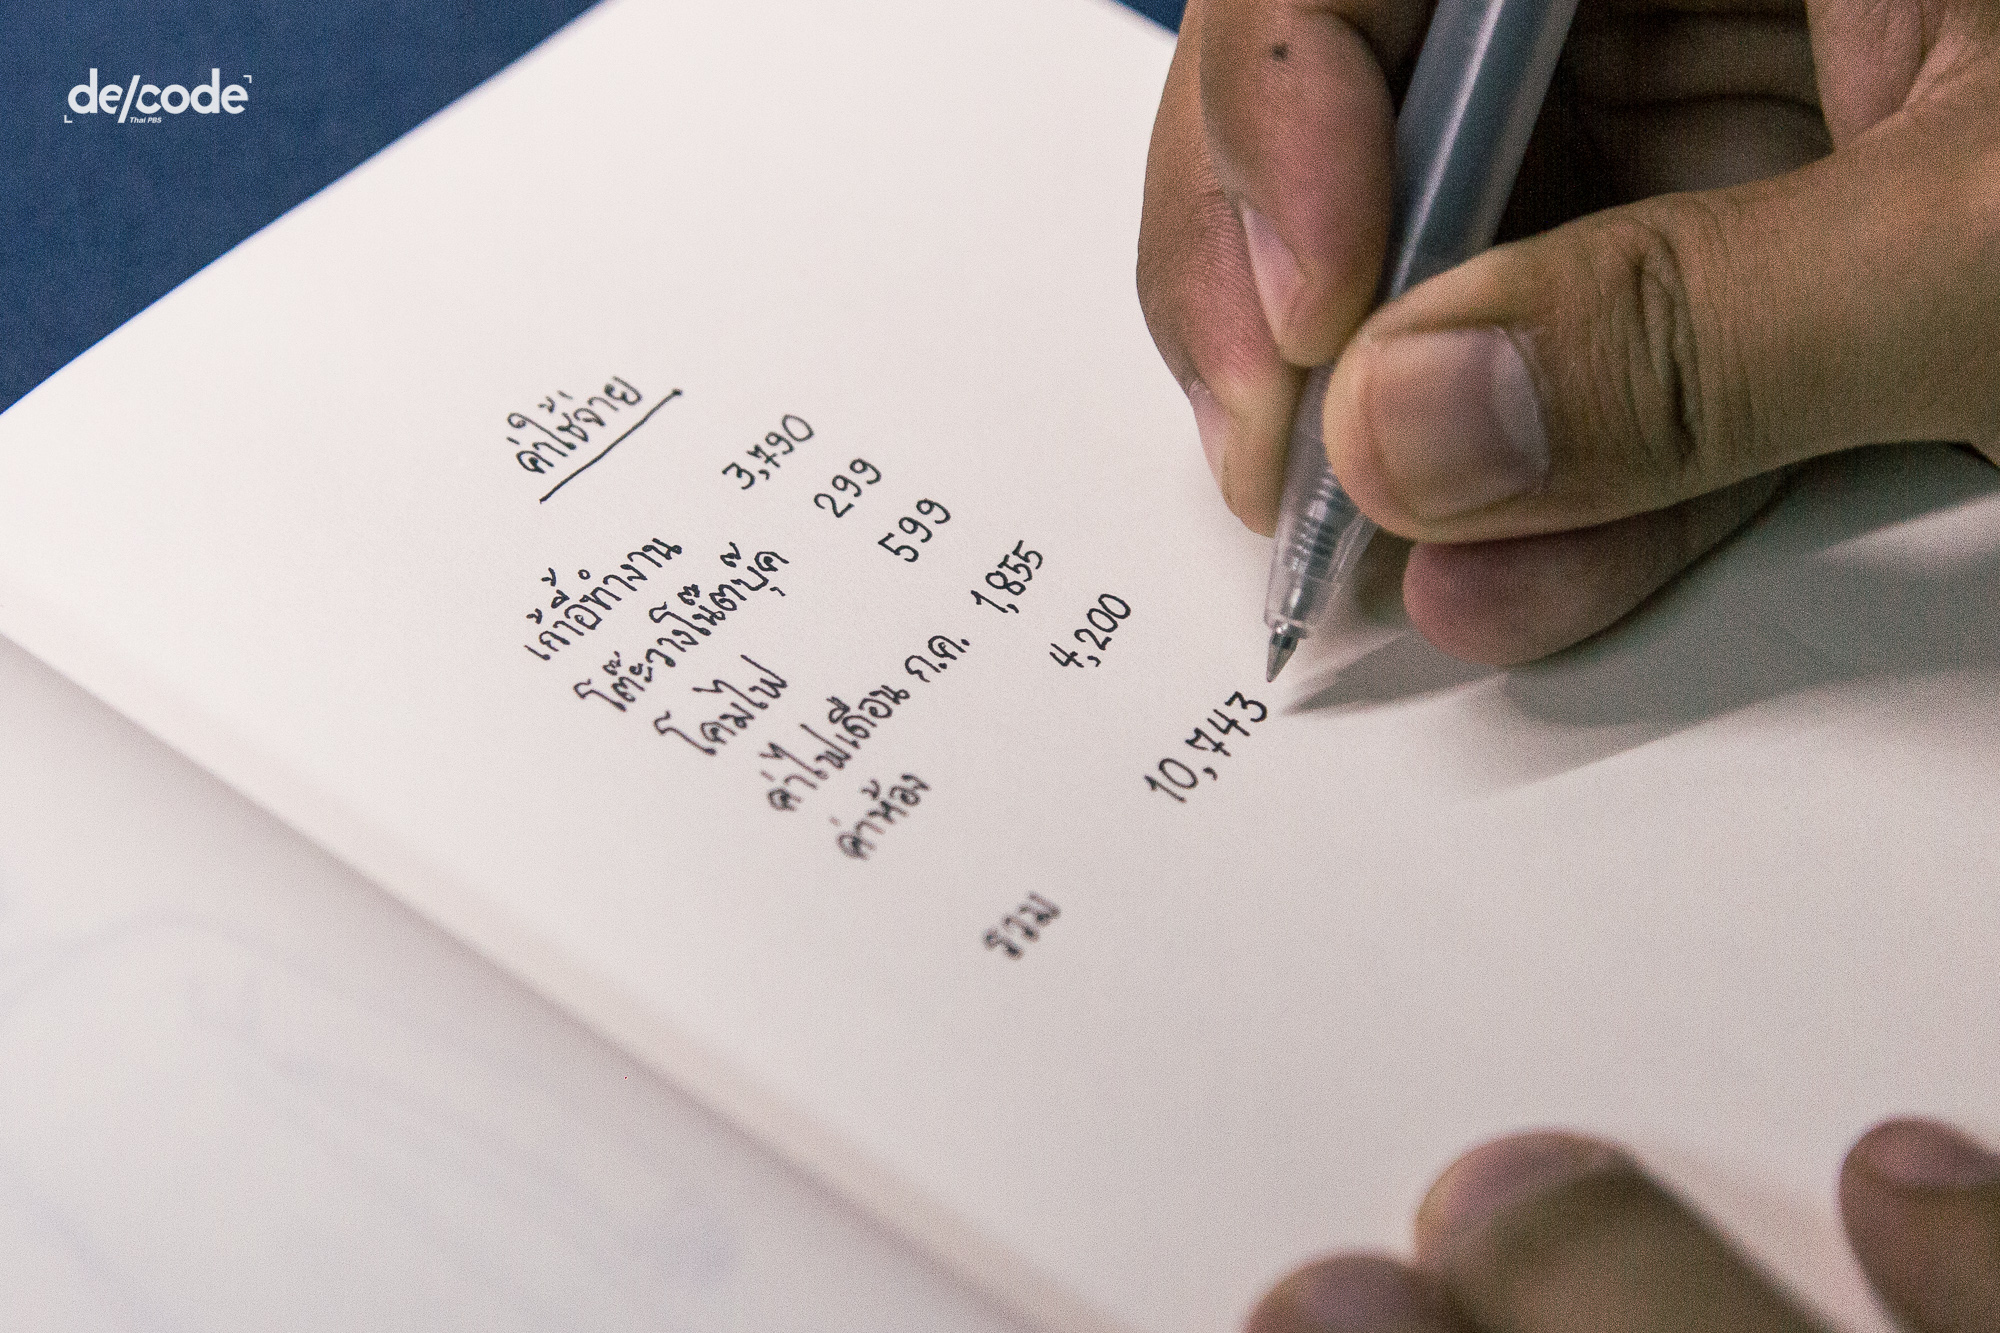 de/code
Thai PBS
ค่าใช้จ่าย
เก้าอี้ทำงาน 3,790
โต๊ะวางโน๊ตบุ๊ค 299
โคมไฟ 599
ค่าไฟเดือน ก.ค. 1,855
ค่าห้อง 4,200
รวม 10,743